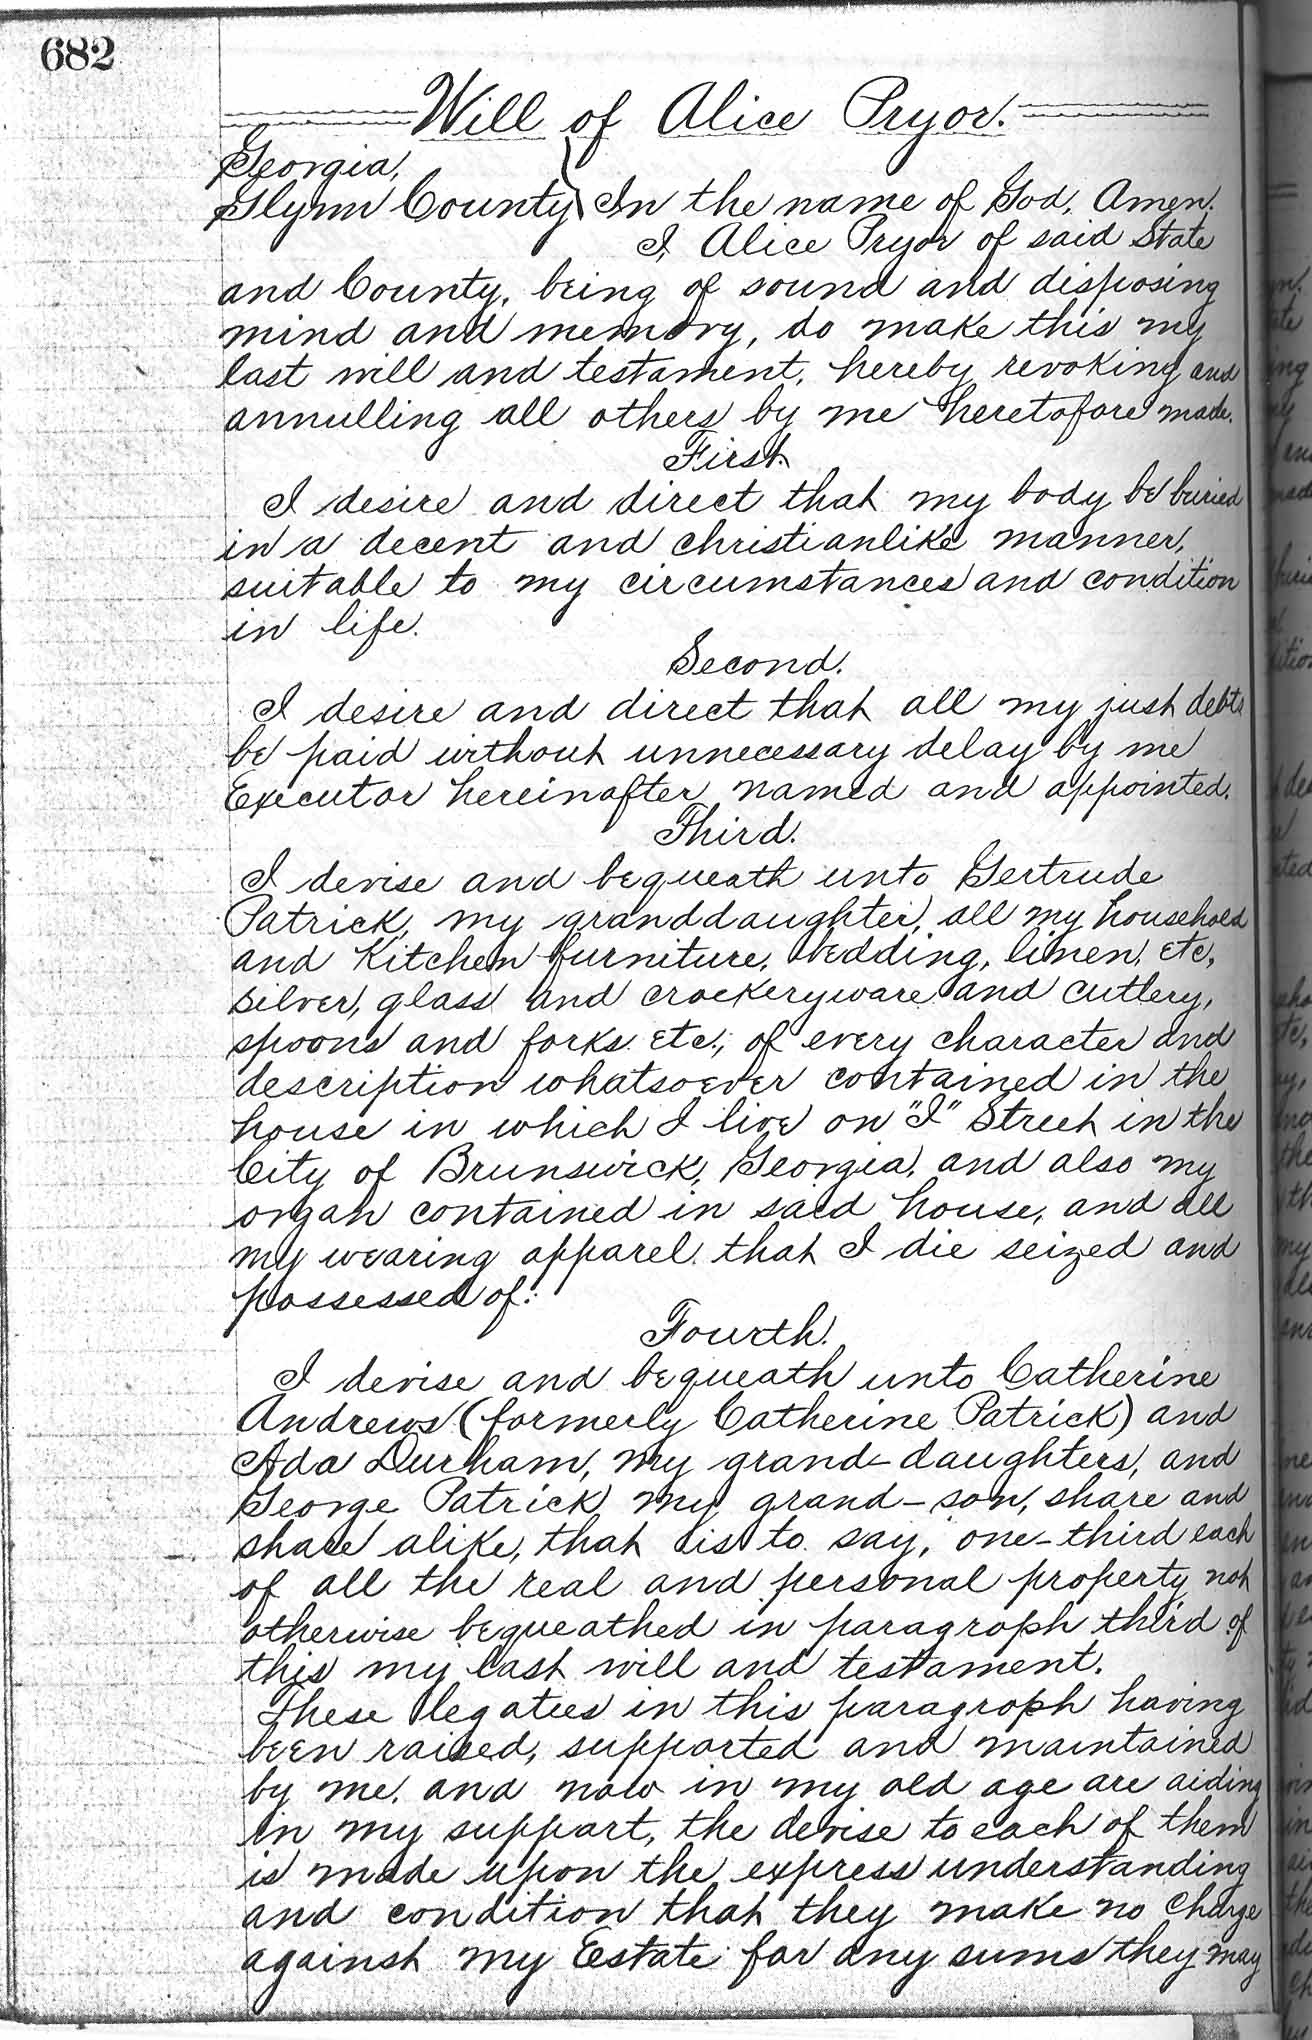 682
Will of Alice Pryor.
Georgia,
Glynn County) In the name of God, Amen.
I, Alice Pryor of said State
and County, being of sound and disposing
mind and memory, do make this my
last will and testament, hereby revoking and
annulling all others by me heretofore made.
First.
I desire and direct that my body be buried
in a decent and christianlike manner,
suitable to my circumstances and condition
in life.
Second.
I desire and direct that all my just debts
be paid without unnecessary delay by me
Executor hereinafter named and appointed.
Third.
I devise and bequeath unto Gertrude
Patrick, my granddaughter, all my household
and Kitchen furniture, bedding, linen, etc,
silver, glass and crockeryware and cutlery,
spoons and forks etc., of every character and
description whatsoever contained in the
house in which I live on "I" Street in the
City of Brunswick, Georgia, and also my
organ contained in said house, and all
my wearing apparel that I die seized and
possessed of.
Fourth.
I devise and bequeath unto Catherine
Andrews (formerly Catherine Patrick) and
Ada Durham, my grand-daughters, and
George Patrick my grand-son, share and
share alike, that is to say, one-third each
of all the real and personal property not
otherwise bequeathed in paragraph third of
this my last will and testament.
These legatees in this paragraph having
been raised, supported and maintained
by me, and now in my old age are aiding
in my support, the devise to each of them
is made upon the express understanding
and condition that they make no charge
against my Estate for any sums they may